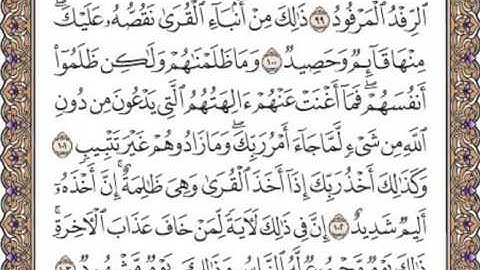 ٱلرِّفۡدُ ٱلۡمَرۡفُودُ ٩٩ ذَٰلِكَ مِنۡ أَنۢبَآءِ ٱلۡقُرَىٰ نَقُصُّهُۥ عَلَيۡكَۖ
مِنۡهَا قَآئِمٞ وَحَصِيدٞ ١٠٠ وَمَا ظَلَمۡنَٰهُمۡ وَلَٰكِن ظَلَمُوٓاْ
أَنفُسَهُمۡۖ فَمَآ أَغۡنَتۡ عَنۡهُمۡ ءَالِهَتُهُمُ ٱلَّتِي يَدۡعُونَ مِن دُونِ
ٱللَّهِ مِن شَيۡءٖ لَّمَّا جَآءَ أَمۡرُ رَبِّكَۖ وَمَا زَادُوهُمۡ غَيۡرَ تَتۡبِيبٖ ١٠١
وَكَذَٰلِكَ أَخۡذُ رَبِّكَ إِذَآ أَخَذَ ٱلۡقُرَىٰ وَهِيَ ظَٰلِمَةٌۚ إِنَّ أَخۡذَهُۥٓ
أَلِيمٞ شَدِيدٌ ١٠٢ إِنَّ فِي ذَٰلِكَ لَأٓيَةٗ لِّمَنۡ خَافَ عَذَابَ ٱلۡأٓخِرَةِۚ
ذَٰلِكَ يَوۡمٞ مَّجۡمُوعٞ لَّهُ ٱلنَّاسُ وَذَٰلِكَ يَوۡمٞ مَّشۡهُودٞ ١٠٣